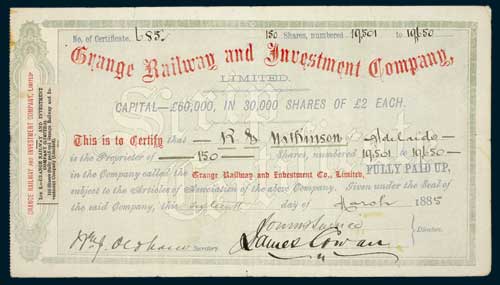 No. of Certificate 685. 150 Shares, numbered 19,501 to 19,650
Grange Railway and Investment Company,
LIMITED.
CAPITAL—£60,000, IN 30,000 SHARES OF £2 EACH.
This is to Certify that R. S. Watkinson Adelaide
is the Proprietor of 150 Shares, numbered 19,501 to 19,650
in the Company called the Grange Railway and Investment Co., Limited, FULLY PAID UP,
subject to the Articles of Association of the above Company. Given under the Seal of
the said Company, this day of March 1885
Wm. J. Oldham Secretary.
James Cowan Directors.
Scrip
Certificate
GRANGE RAILWAY AND INVESTMENT COMPANY, LIMITED